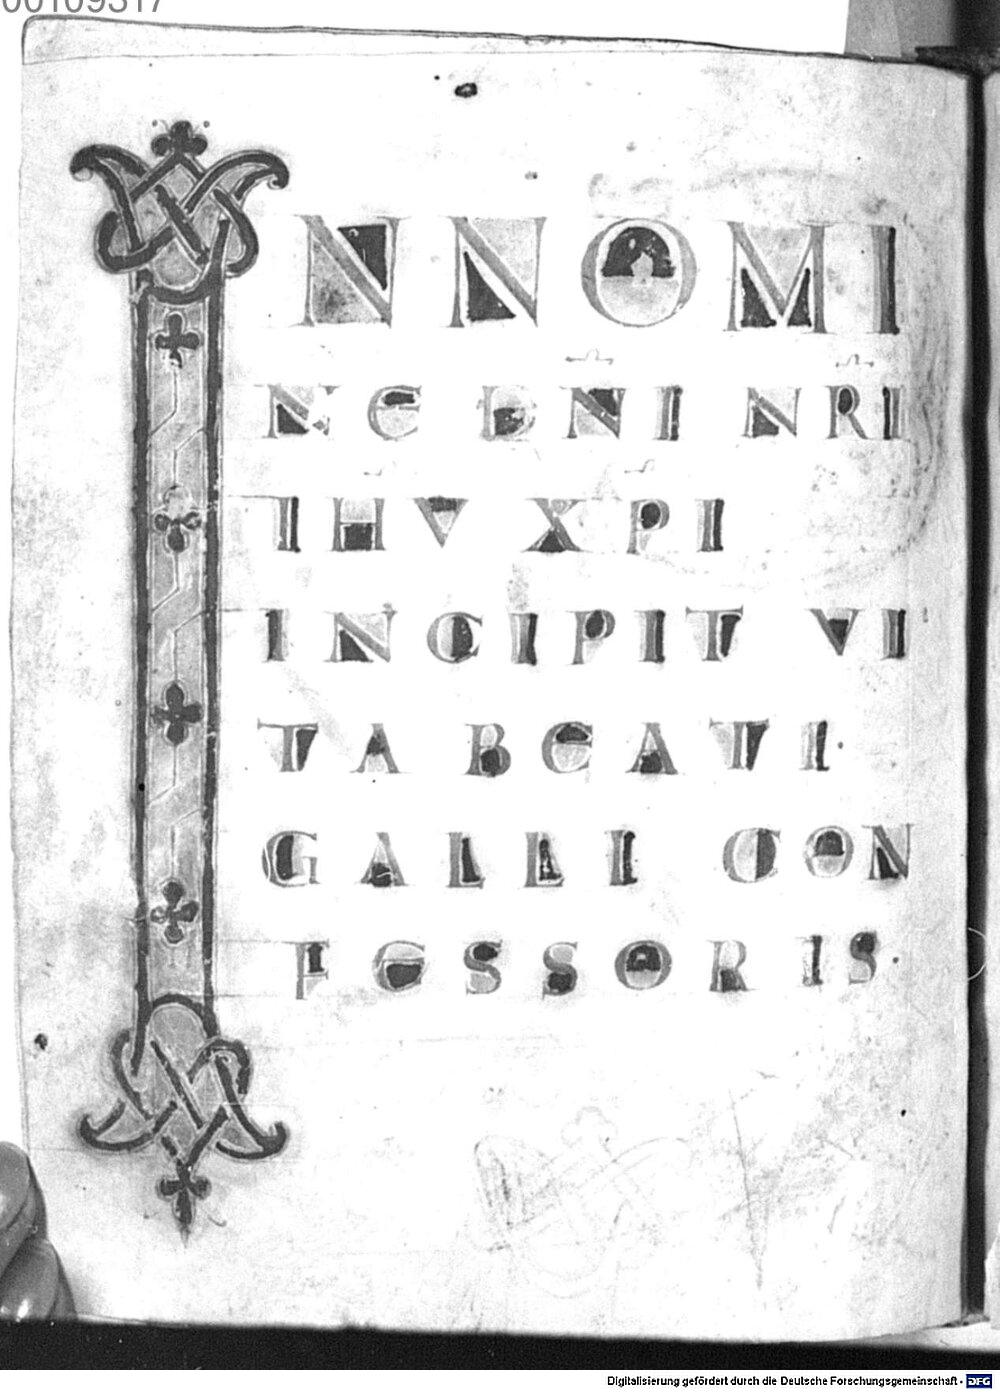 00109317
INNOMI
NE DNI NRI
IHV XPI
INCIPIT VI
TA BEATI
GALLI CON
FESSORIS
Digitalisierung gefördert durch die Deutsche Forschungsgemeinschaft - DFG